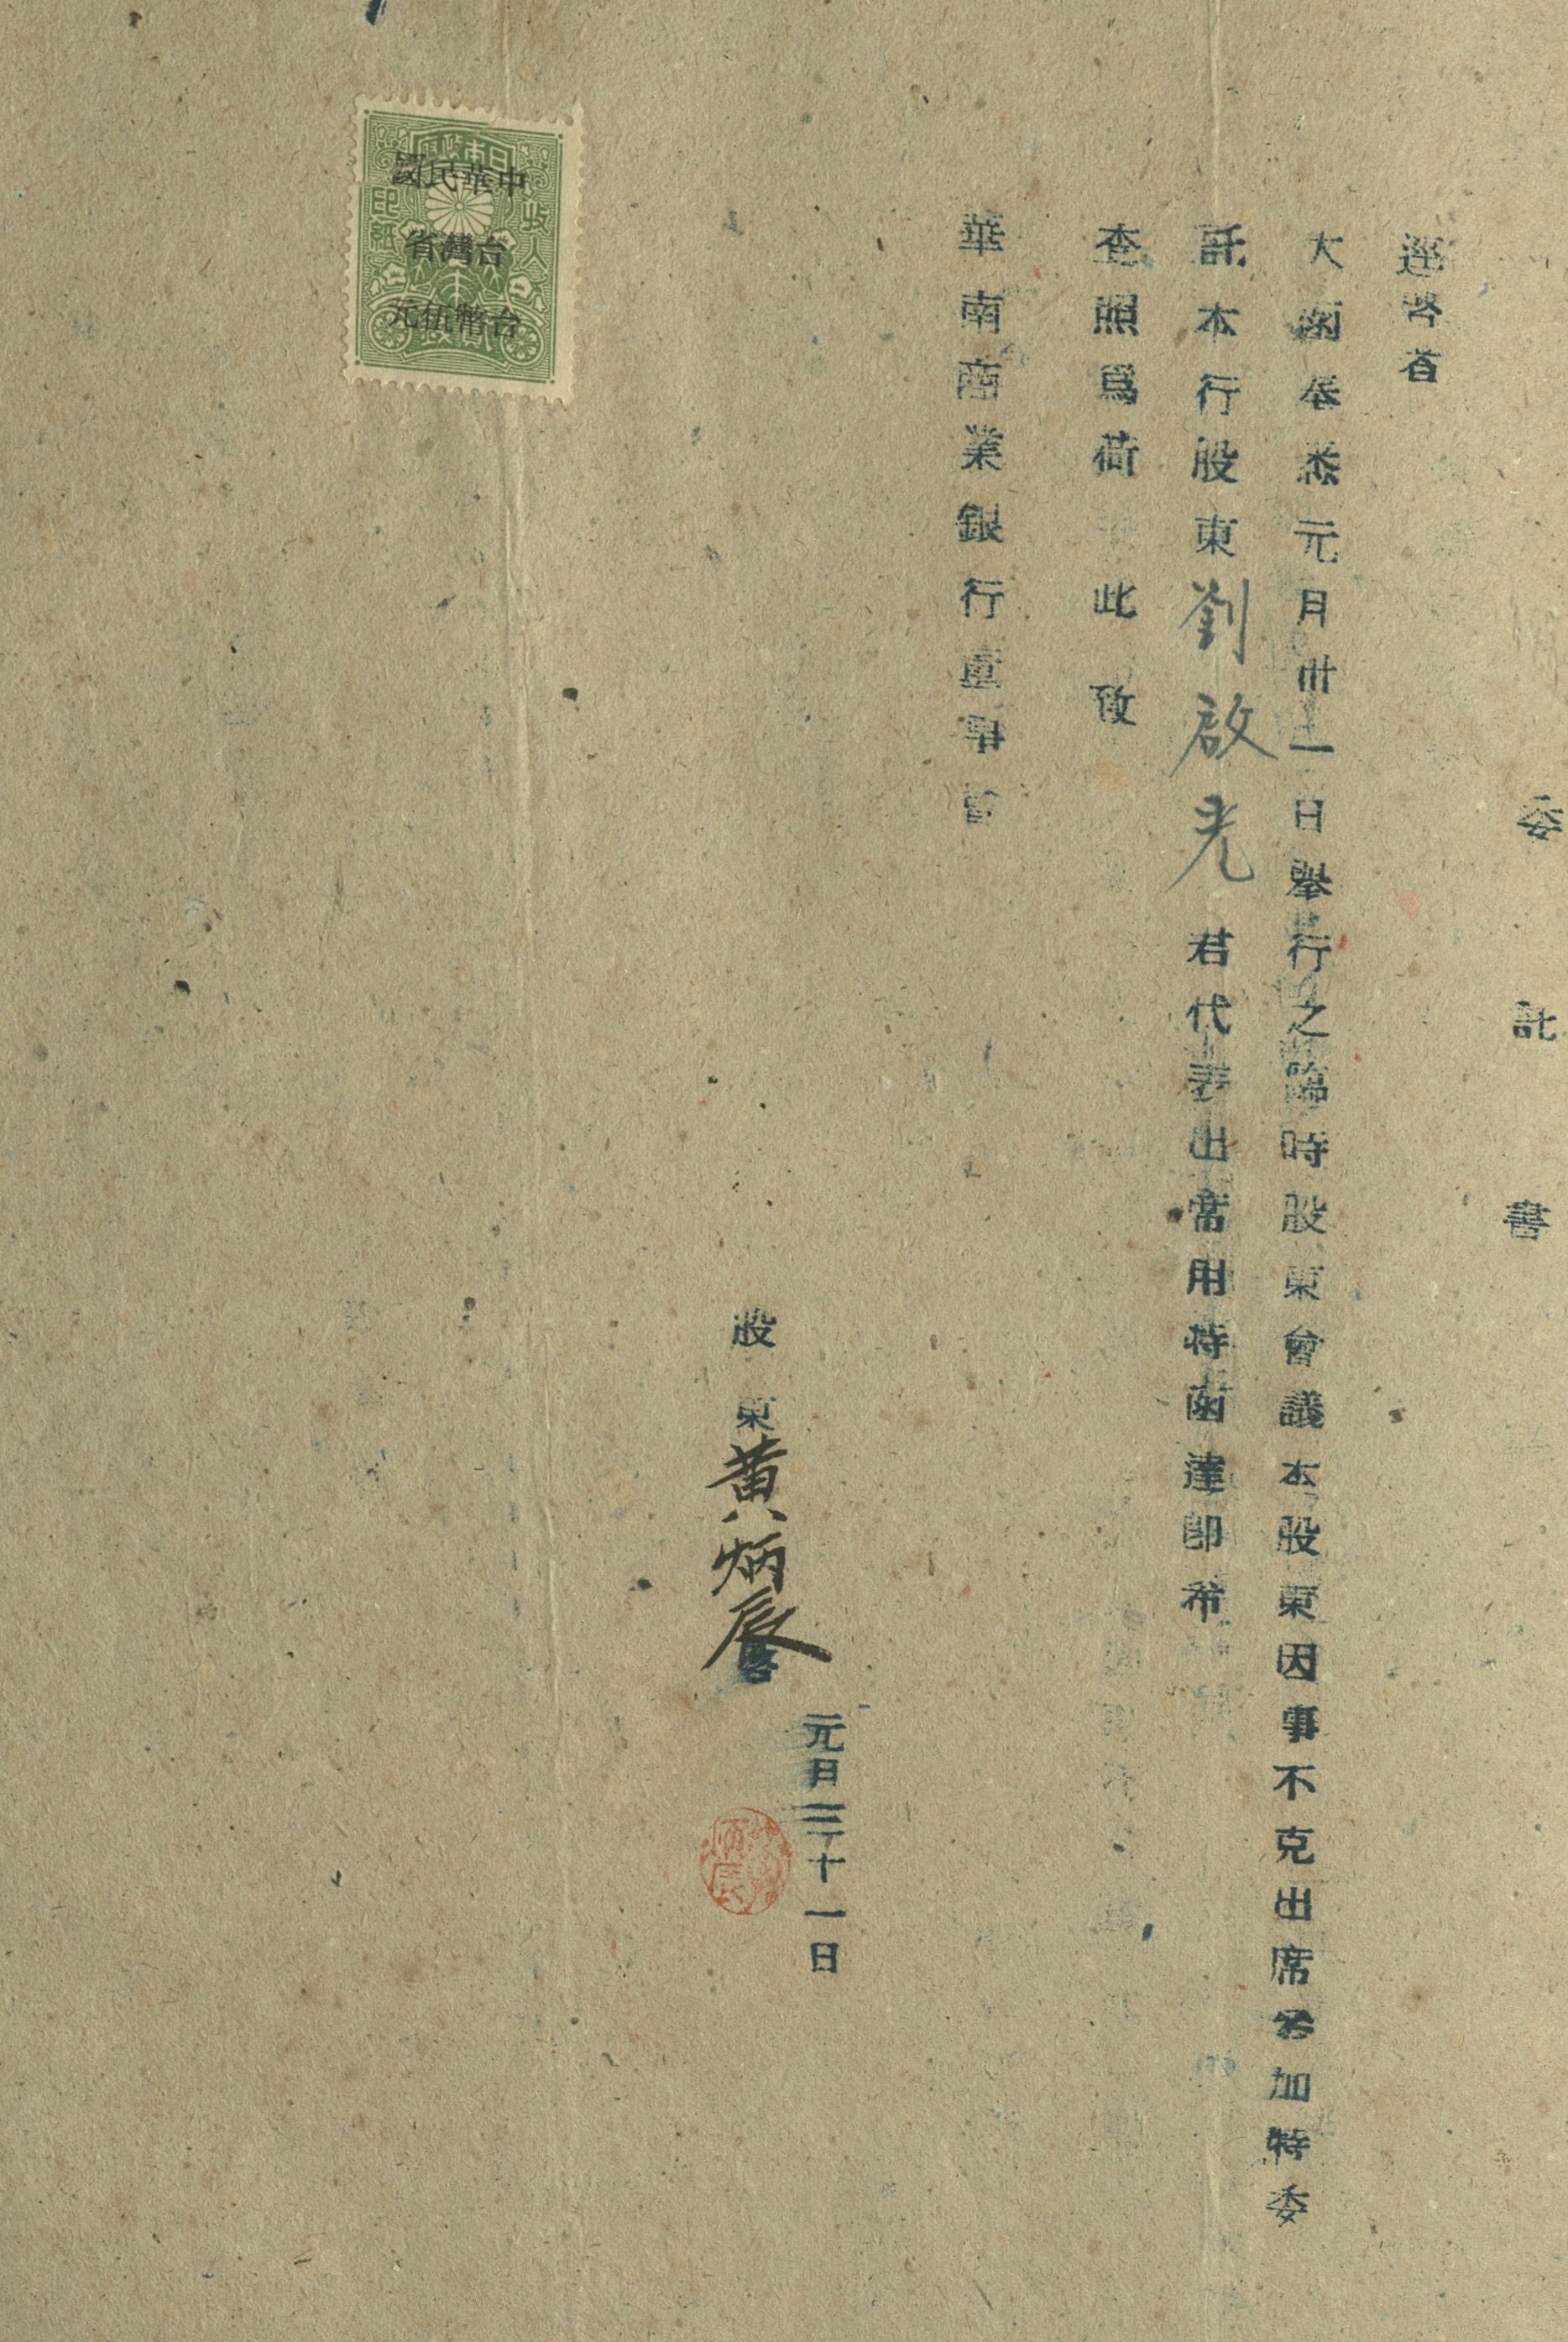 委託書
逕啓者
大函奉悉元月卅一日舉行之臨時股東會議本股東因事不克出席參加特委
託本行股東劉啟光君代表出席用特函達即希
查照爲荷 此致
華南商業銀行董事會
股東黃炳辰啓
元月三十一日
炳辰
收入印紙
中華民國
台灣省
台幣伍元